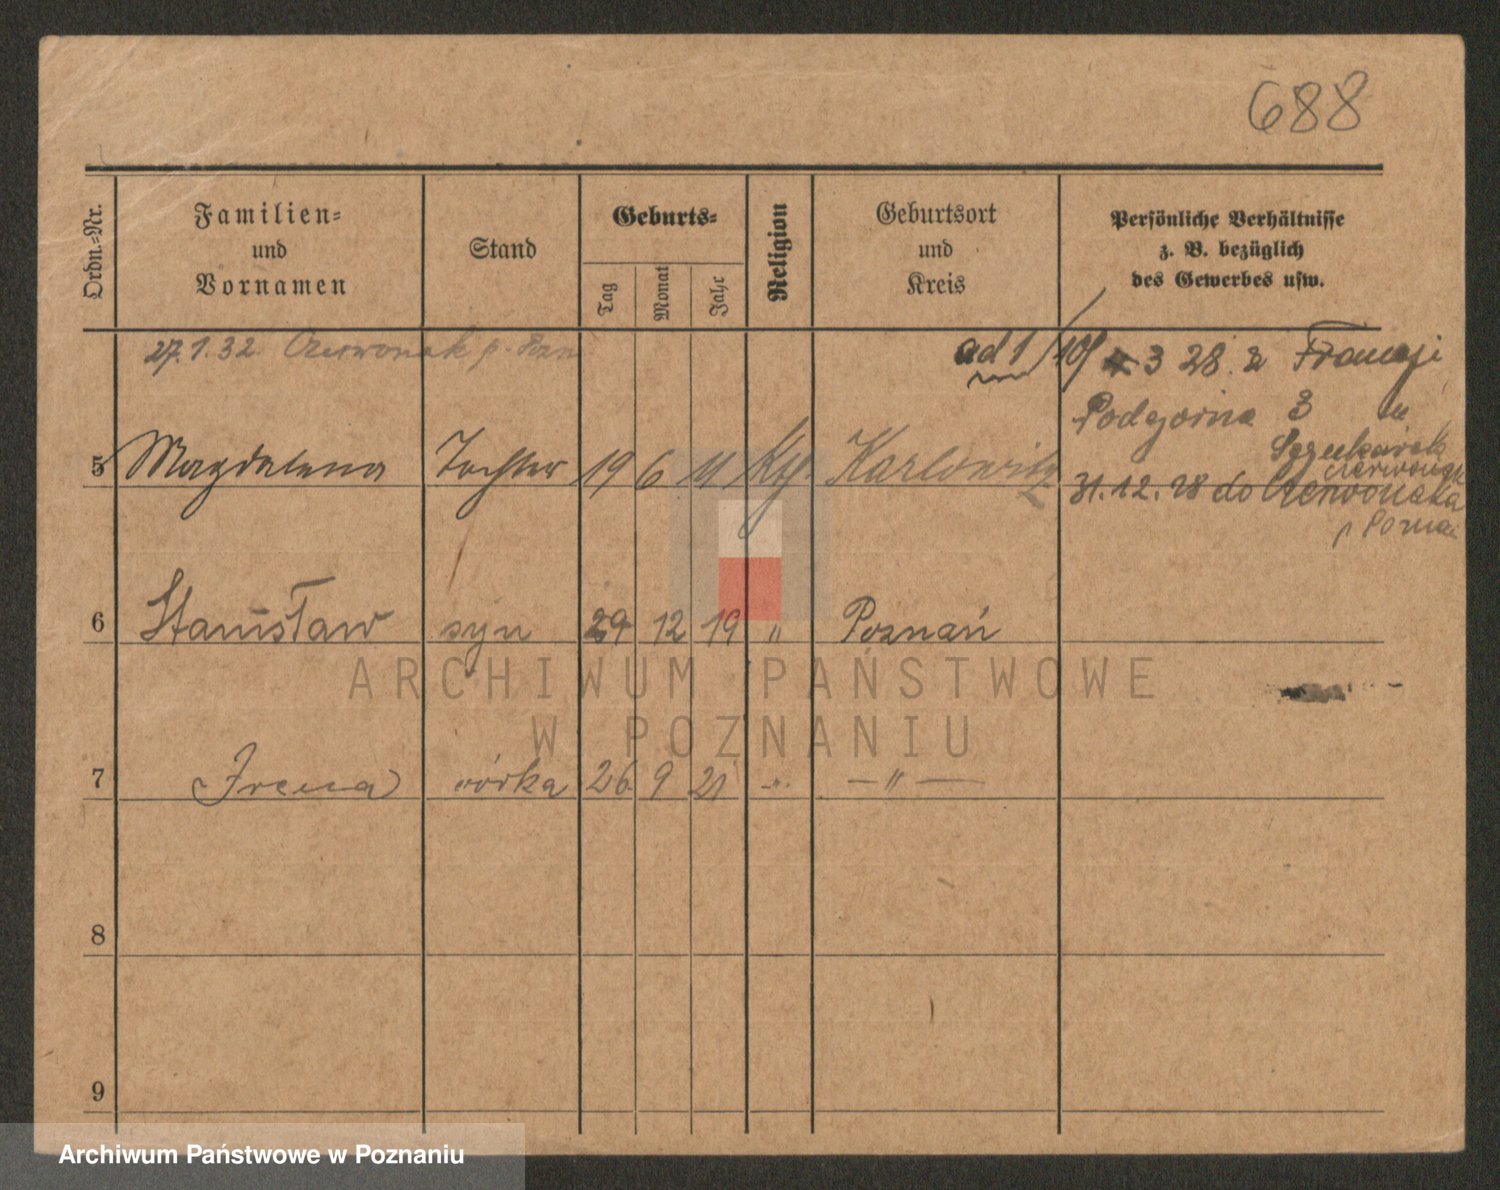 688
Ordn.-Nr.
Familien-
und
Vornamen
Stand
Geburts-
Tag
Monat
Jahr
Religion
Geburtsort
und
Kreis
Persönliche Verhältnisse
z. B. bezüglich
des Gewerbes usw.
27.1.32 Czerwonak p. Pozn
ad 1 / 3 28. z Francji
Podgorna 3 u
31.12.28 do Czerwonaka
p Pozna
5 Magdalena Tochter 19 6 11 Kth. Karlowitz
6 Stanisław syn 29 12 19 " Poznań
7 Irena córka 26 9 21 -"- — " —
8
9
ARCHIWUM PAŃSTWOWE
W POZNANIU
Archiwum Państwowe w Poznaniu